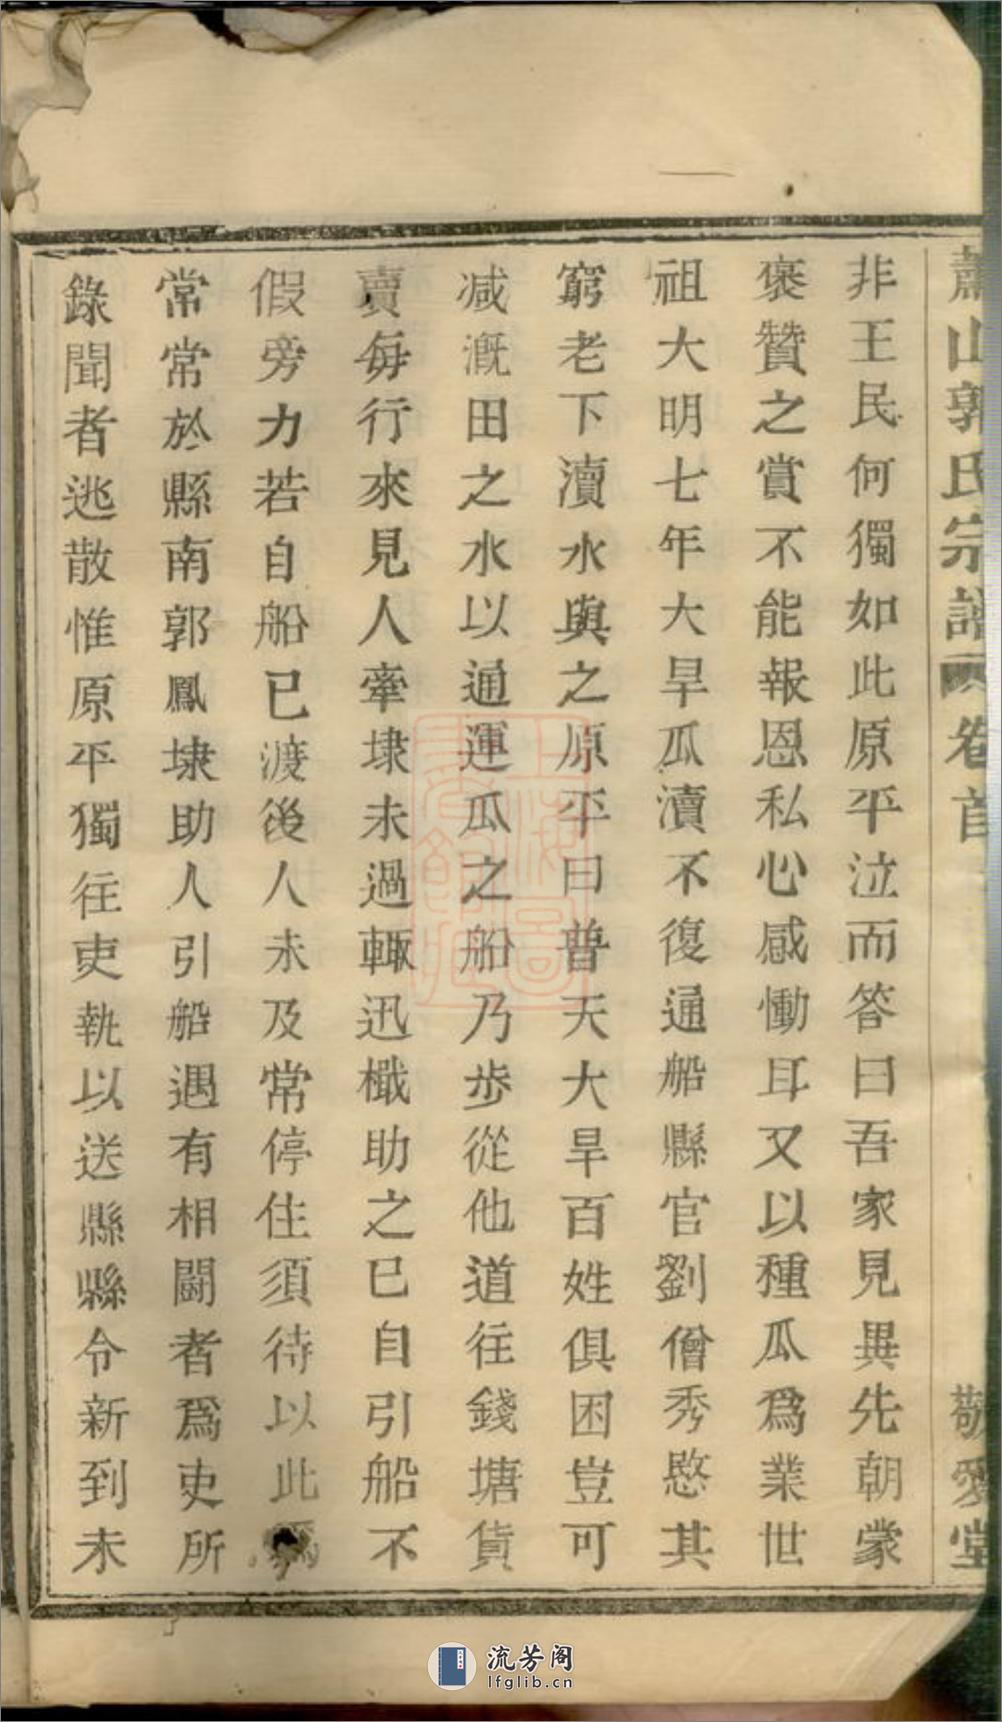 蕭山郭氏宗譜 卷首 敬愛堂
非王民何獨如此原平泣而答曰吾家見異先朝蒙
褒贊之賞不能報恩私心感慟耳又以種瓜為業世
祖大明七年大旱瓜瀆不復通船縣官劉僧秀愍其
窮老下瀆水與之原平曰普天大旱百姓俱困豈可
减溉田之水以通運瓜之船乃步從他道往錢塘貨
賣每行來見人牽埭未過輙迅檝助之已自引船不
假旁力若自船已渡後人未及常停住須待以此為
常常於縣南郭鳳埭助人引船遇有相鬬者爲吏所
錄聞者逃散惟原平獨往吏執以送縣縣令新到未
上海圖
書館藏
流芳阁
lfglib.cn